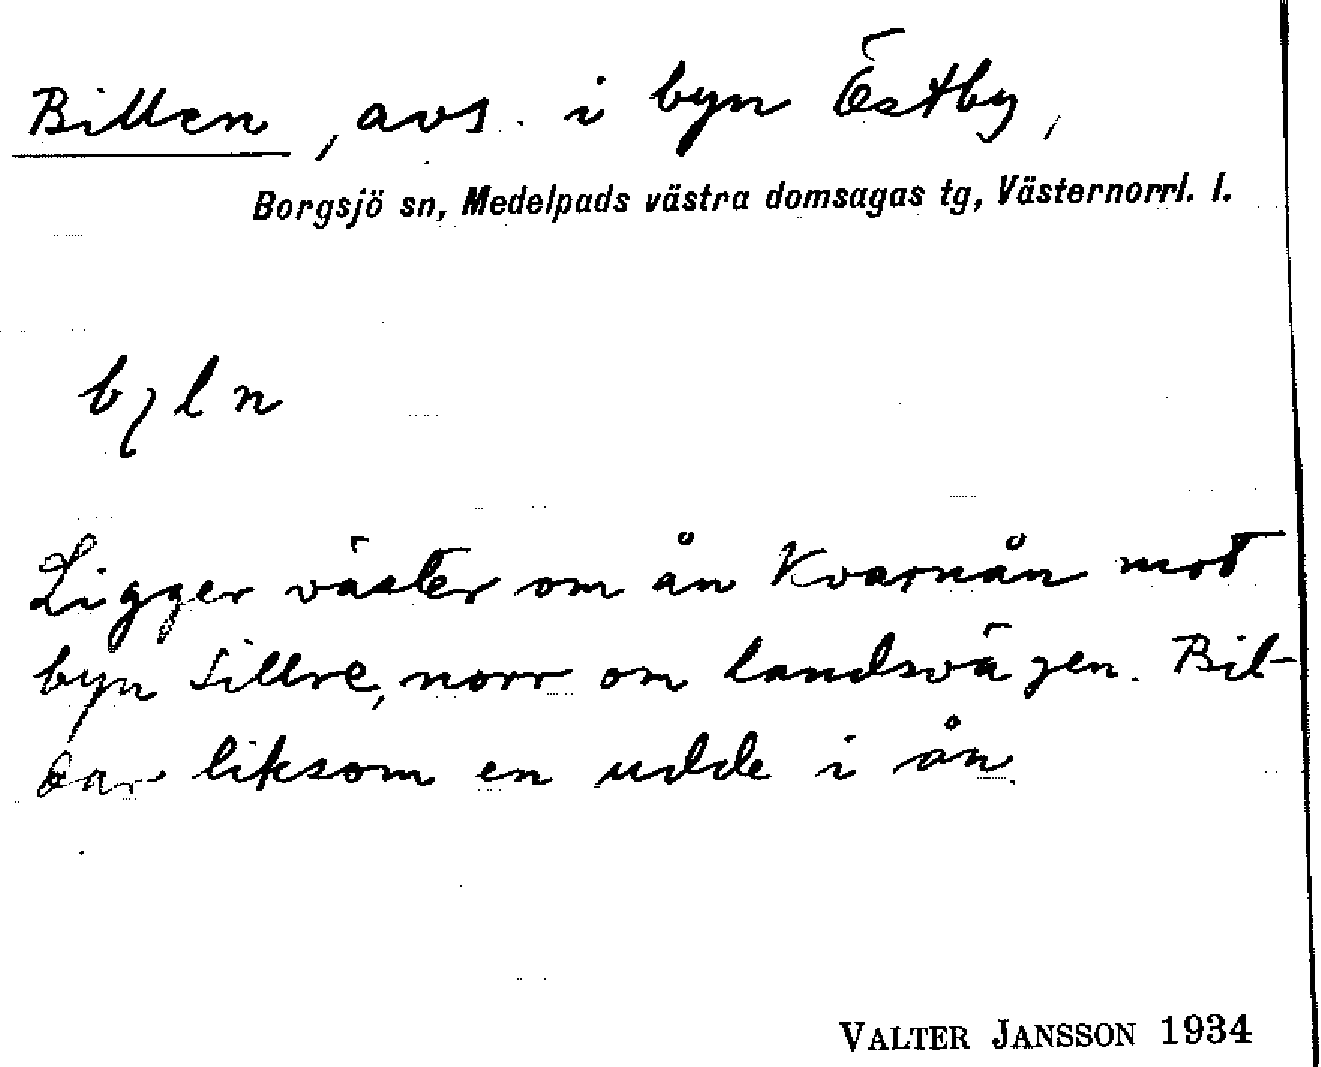 Billen, avs. i byn Östby,
Borgsjö sn, Medelpads västra domsagas tg, Västernorrl. l.
Ligger väster om ån Kvarnån mot
byn Sillre, norr om landsvägen. Bil-
dar liksom en udde i ån.
VALTER JANSSON 1934